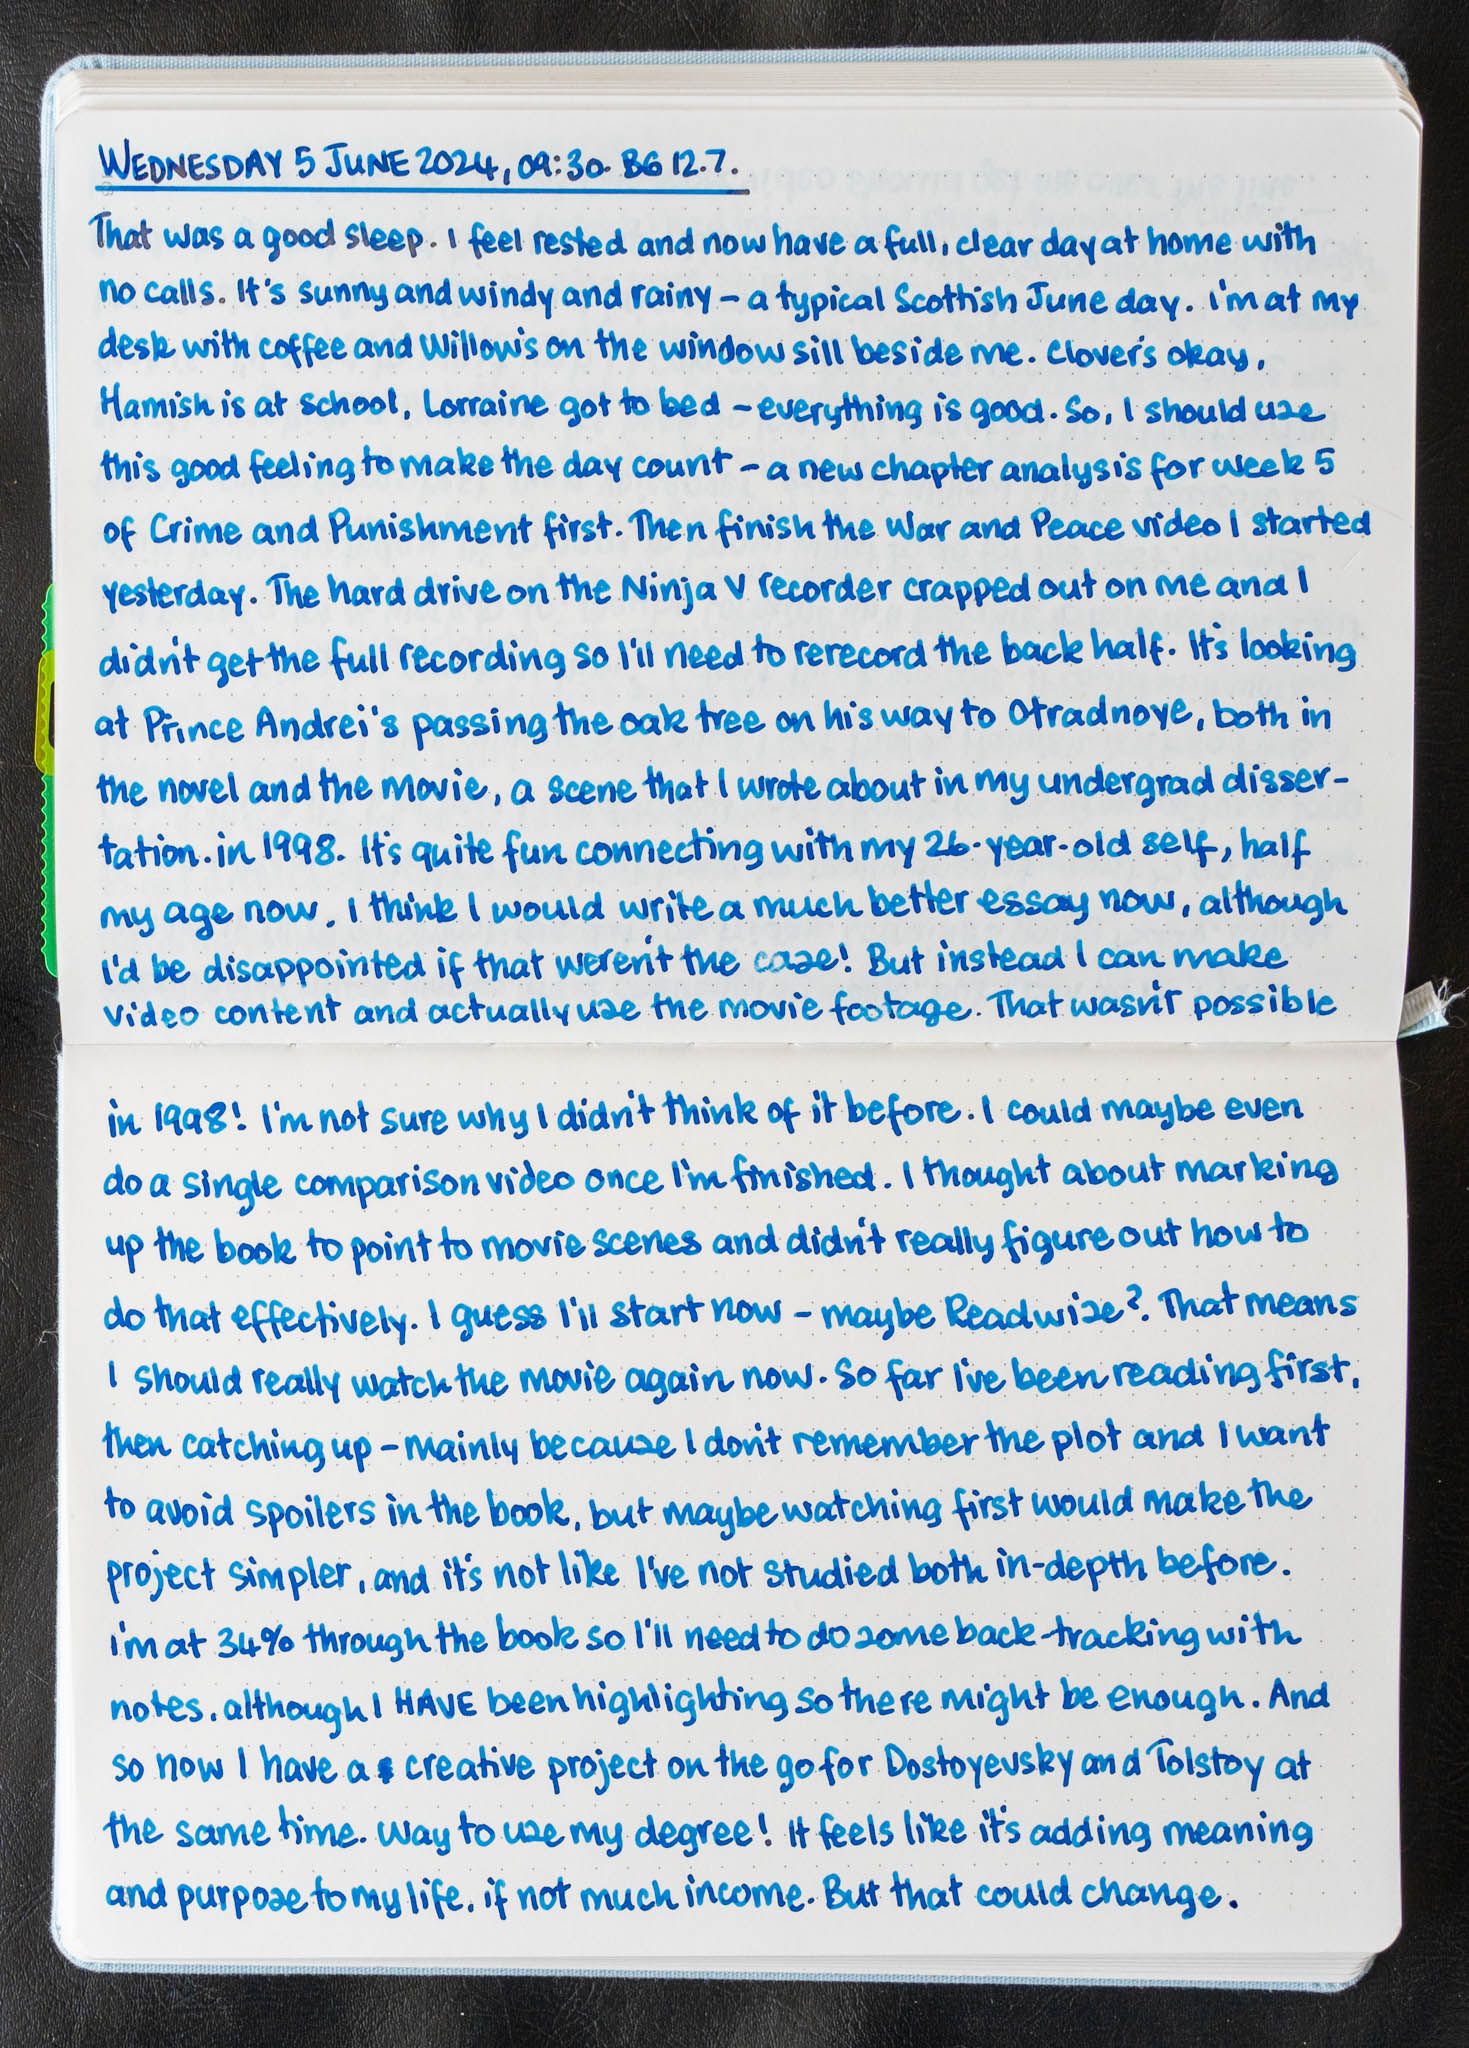 WEDNESDAY 5 JUNE 2024, 09:30. BG 12.7.
That was a good sleep. I feel rested and now have a full, clear day at home with
no calls. It's sunny and windy and rainy – a typical Scottish June day. I'm at my
desk with coffee and Willow's on the window sill beside me. Clover's okay,
Hamish is at school, Lorraine got to bed – everything is good. So, I should use
this good feeling to make the day count – a new chapter analysis for week 5
of Crime and Punishment first. Then finish the War and Peace video I started
yesterday. The hard drive on the Ninja V recorder crapped out on me and I
didn't get the full recording so I'll need to rerecord the back half. It's looking
at Prince Andrei's passing the oak tree on his way to Otradnoye, both in
the novel and the movie, a scene that I wrote about in my undergrad disser-
tation. in 1998. It's quite fun connecting with my 26-year-old self, half
my age now. I think I would write a much better essay now, although
I'd be disappointed if that weren't the case! But instead I can make
video content and actually use the movie footage. That wasn't possible
in 1998! I'm not sure why I didn't think of it before. I could maybe even
do a single comparison video once I'm finished. I thought about marking
up the book to point to movie scenes and didn't really figure out how to
do that effectively. I guess I'll start now – maybe Readwise?. That means
I should really watch the movie again now. So far I've been reading first,
then catching up – mainly because I don't remember the plot and I want
to avoid spoilers in the book, but maybe watching first would make the
project simpler, and it's not like I've not studied both in-depth before.
I'm at 34% through the book so I'll need to do some back-tracking with
notes, although I HAVE been highlighting so there might be enough. And
so now I have a creative project on the go for Dostoyevsky and Tolstoy at
the same time. Way to use my degree! It feels like it's adding meaning
and purpose to my life, if not much income. But that could change.